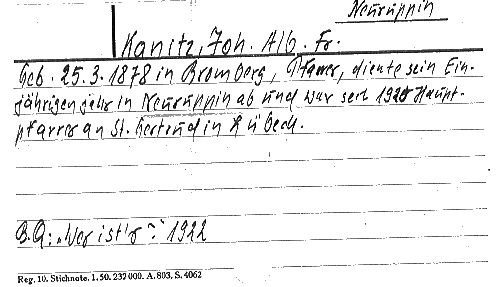 Neuruppin
Kanitz, Joh. Alb. Fr.
Geb. 25.3.1878 in Bromberg, Pfarrer, diente sein Ein-
jährigenjahr in Neuruppin ab und war seit 1920 Haupt-
pfarrer an St. Gertrud in Lübeck.
B.Q: „Wer ist's“: 1922
Reg. 10. Stichnote. 1. 50. 237 000. A. 803. S. 4062